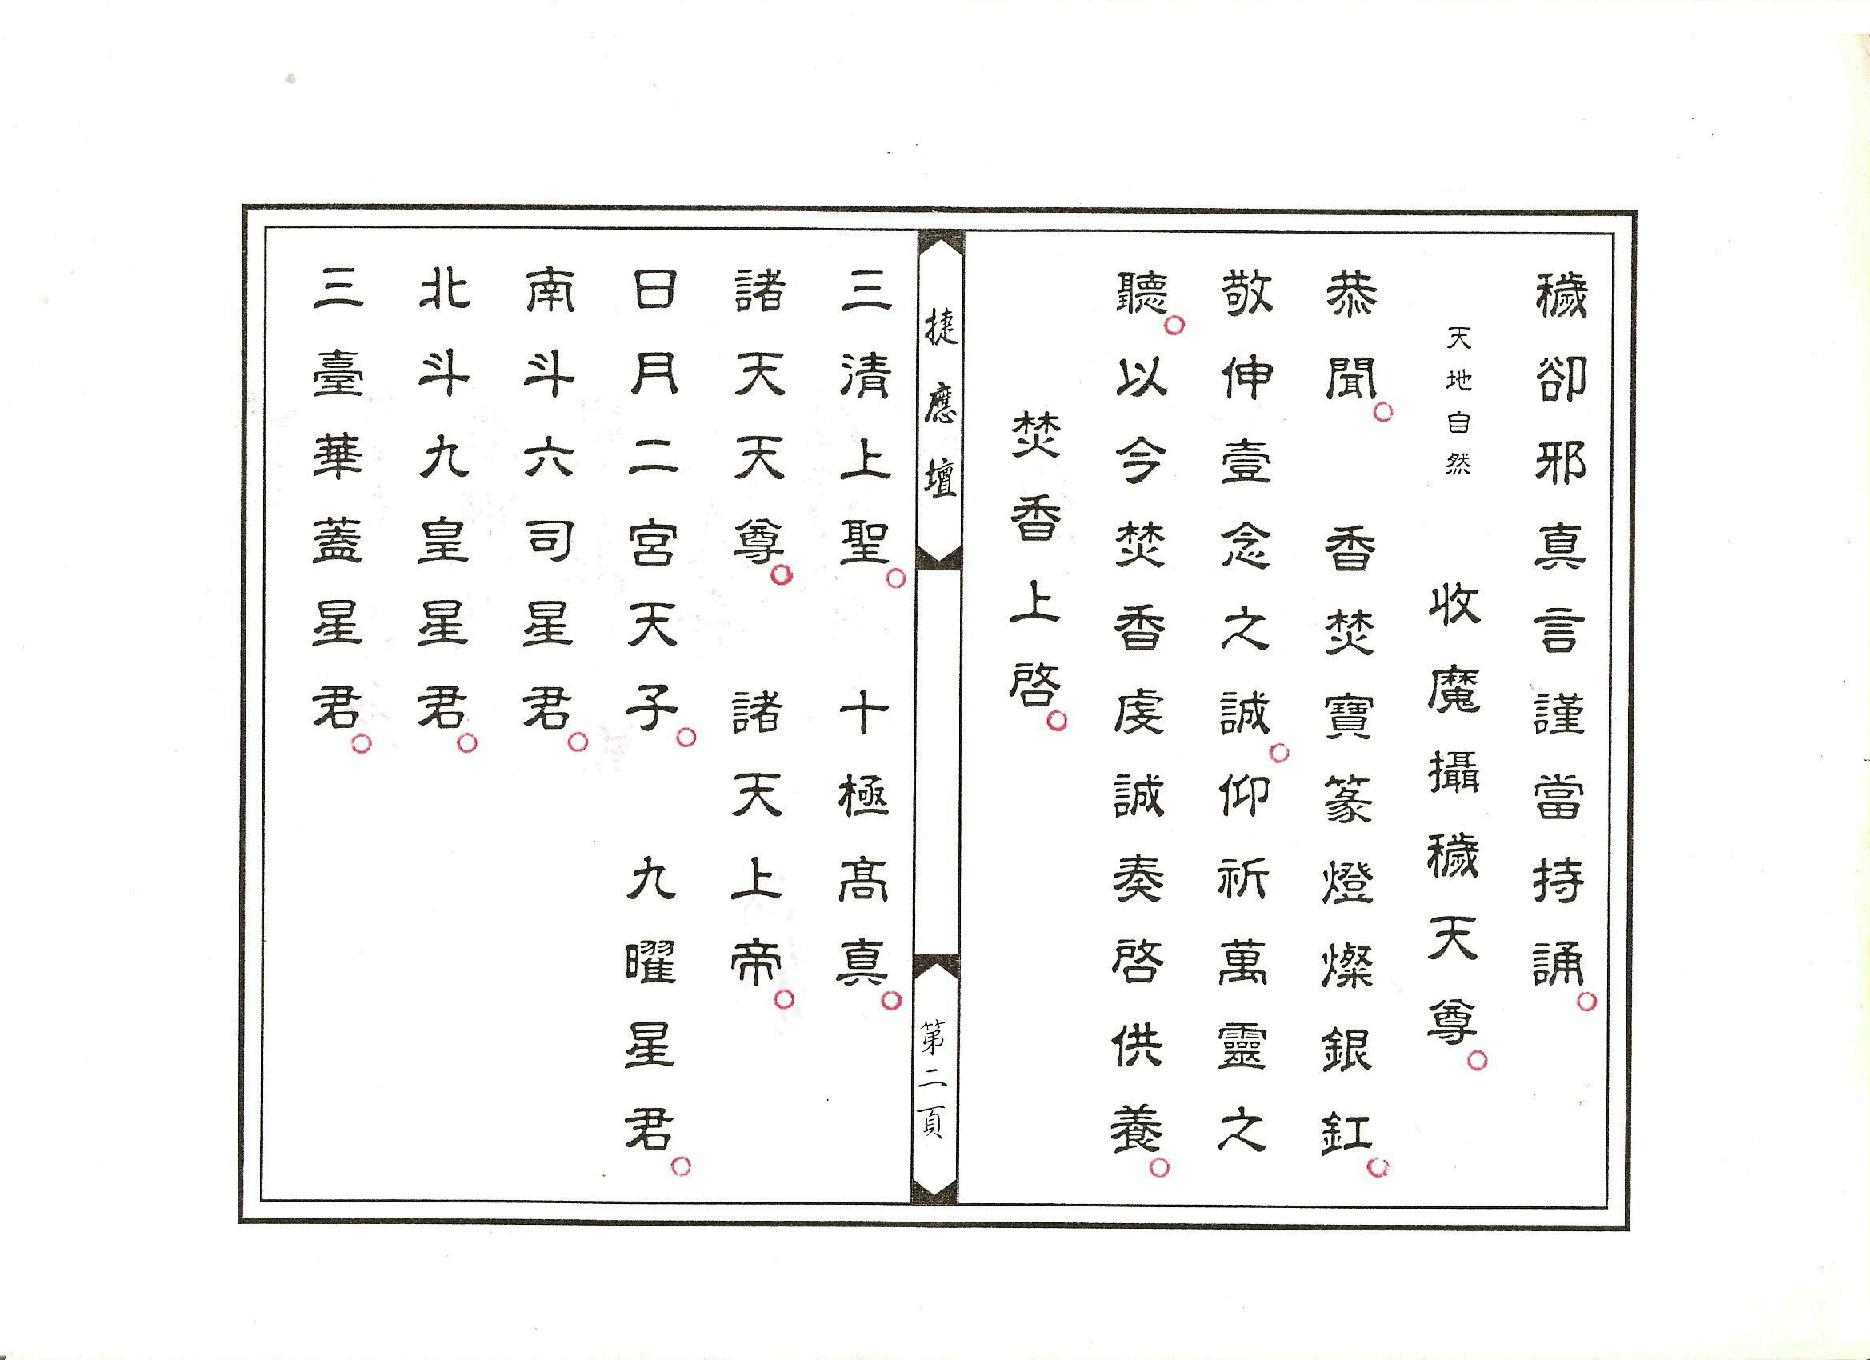 穢卻邪真言謹當持誦○
天地自然　收魔攝穢天尊○
恭聞○　香焚寶篆燈燦銀釭○
敬伸壹念之誠○仰祈萬靈之
聽○以今焚香虔誠奏啓供養○
焚香上啓○
捷應壇
第二頁
三清上聖○　十極高真○
諸天天尊○　諸天上帝○
日月二宮天子○　九曜星君○
南斗六司星君○
北斗九皇星君○
三臺華蓋星君○